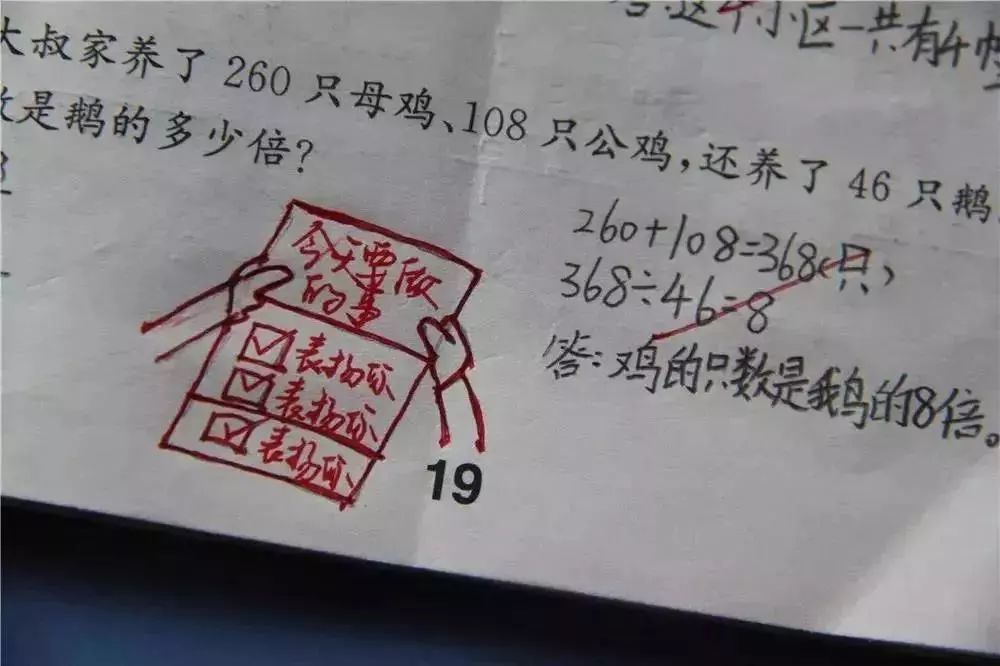 这个小区一共有4
大叔家养了 260 只母鸡、108 只公鸡,还养了 46 只鹅
是鹅的多少倍?
260+108=368(只)
368÷46=8
答:鸡的只数是鹅的8倍。
今天要做
的事
表扬你
表扬你
表扬你
19